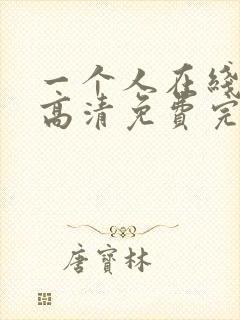 一个人在线
高清免费完
唐寶林